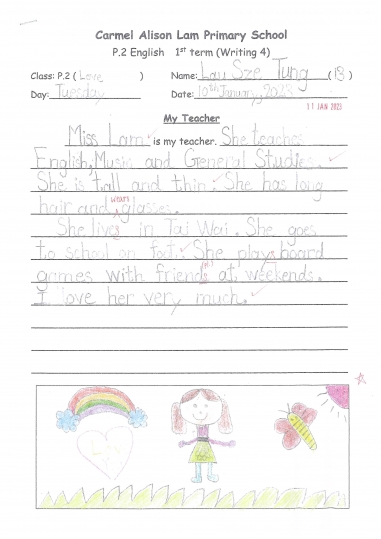 Carmel Alison Lam Primary School
P.2 English 1st term (Writing 4)
Class: P.2 ( Love ) Name: Lau Sze Tung ( 13 )
Day: Tuesday Date: 10th January, 2023
11 JAN 2023
My Teacher
Miss Lam is my teacher. She teaches
English, Music and General Studies.
She is tall and thin. She has long
hair and wears glasses.
She lives in Tai Wai. She goes
to school on foot. She plays board
games with friends at weekends.
I love her very much.